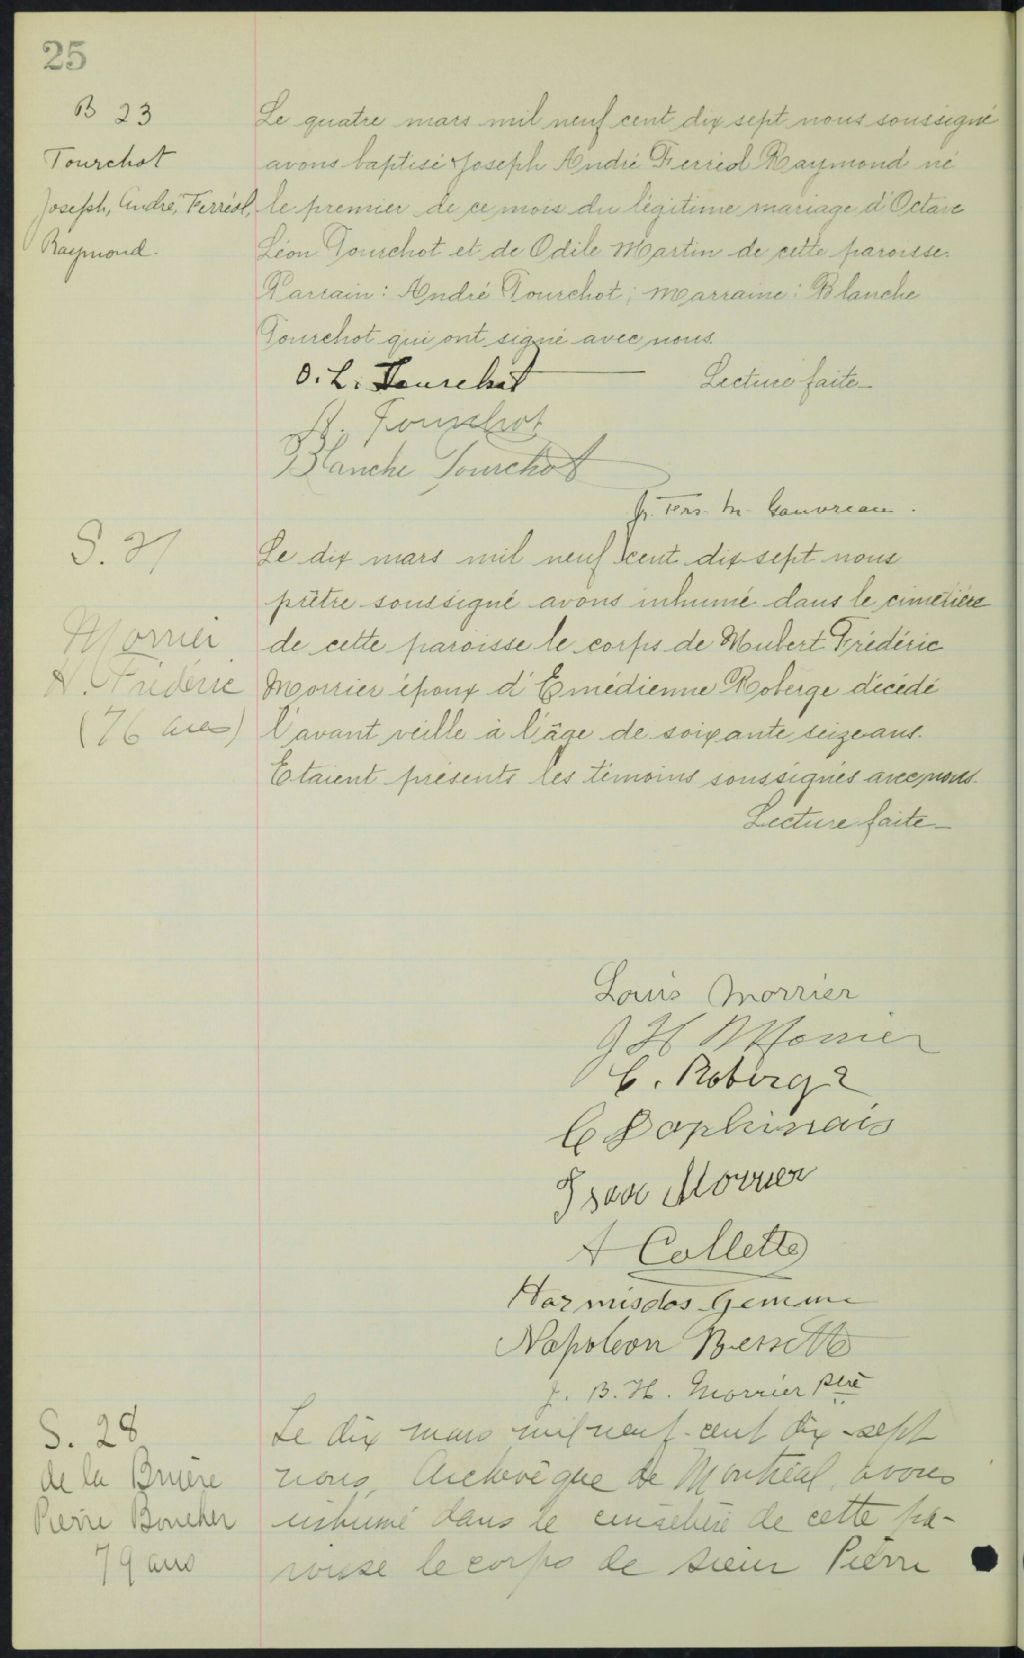 25
B 23
Tourchot
Joseph, André, Ferréol,
Raymond.
Le quatre mars mil neuf cent dix sept nous soussigné
avons baptisé Joseph André Ferréol Raymond né
le premier de ce mois du légitime mariage d'Octave
Léon Tourchot et de Odile Martin de cette paroisse.
Parrain: André Tourchot; marraine: Blanche
Tourchot qui ont signé avec nous.
Lecture faite
O. L. Tourchot
A. Tourchot
Blanche Tourchot
Gauvreau.
S. 27
Morrier
H. Frédéric
(76 ans)
Le dix mars mil neuf cent dix-sept nous
prêtre soussigné avons inhumé dans le cimetière
de cette paroisse le corps de Hubert Frédéric
Morrier époux d'Emédienne Roberge décédé
l'avant veille à l'âge de soixante seize ans.
Etaient présents les témoins soussignés avec nous.
Lecture faite
Louis Morrier
J H Morrier
C. Roberge
C Dophinais
Isaac Morrier
A Collette
Harmisdas Gemme
Napoleon Bessette
J. B. H. Morrier ptre
S. 28
de la Bruère
Pierre Boucher
79 ans
Le dix mars mil neuf-cent dix-sept
nous, Archevêque de Montréal, avons
inhumé dans le cimetière de cette pa-
roisse le corps de sieur Pierre